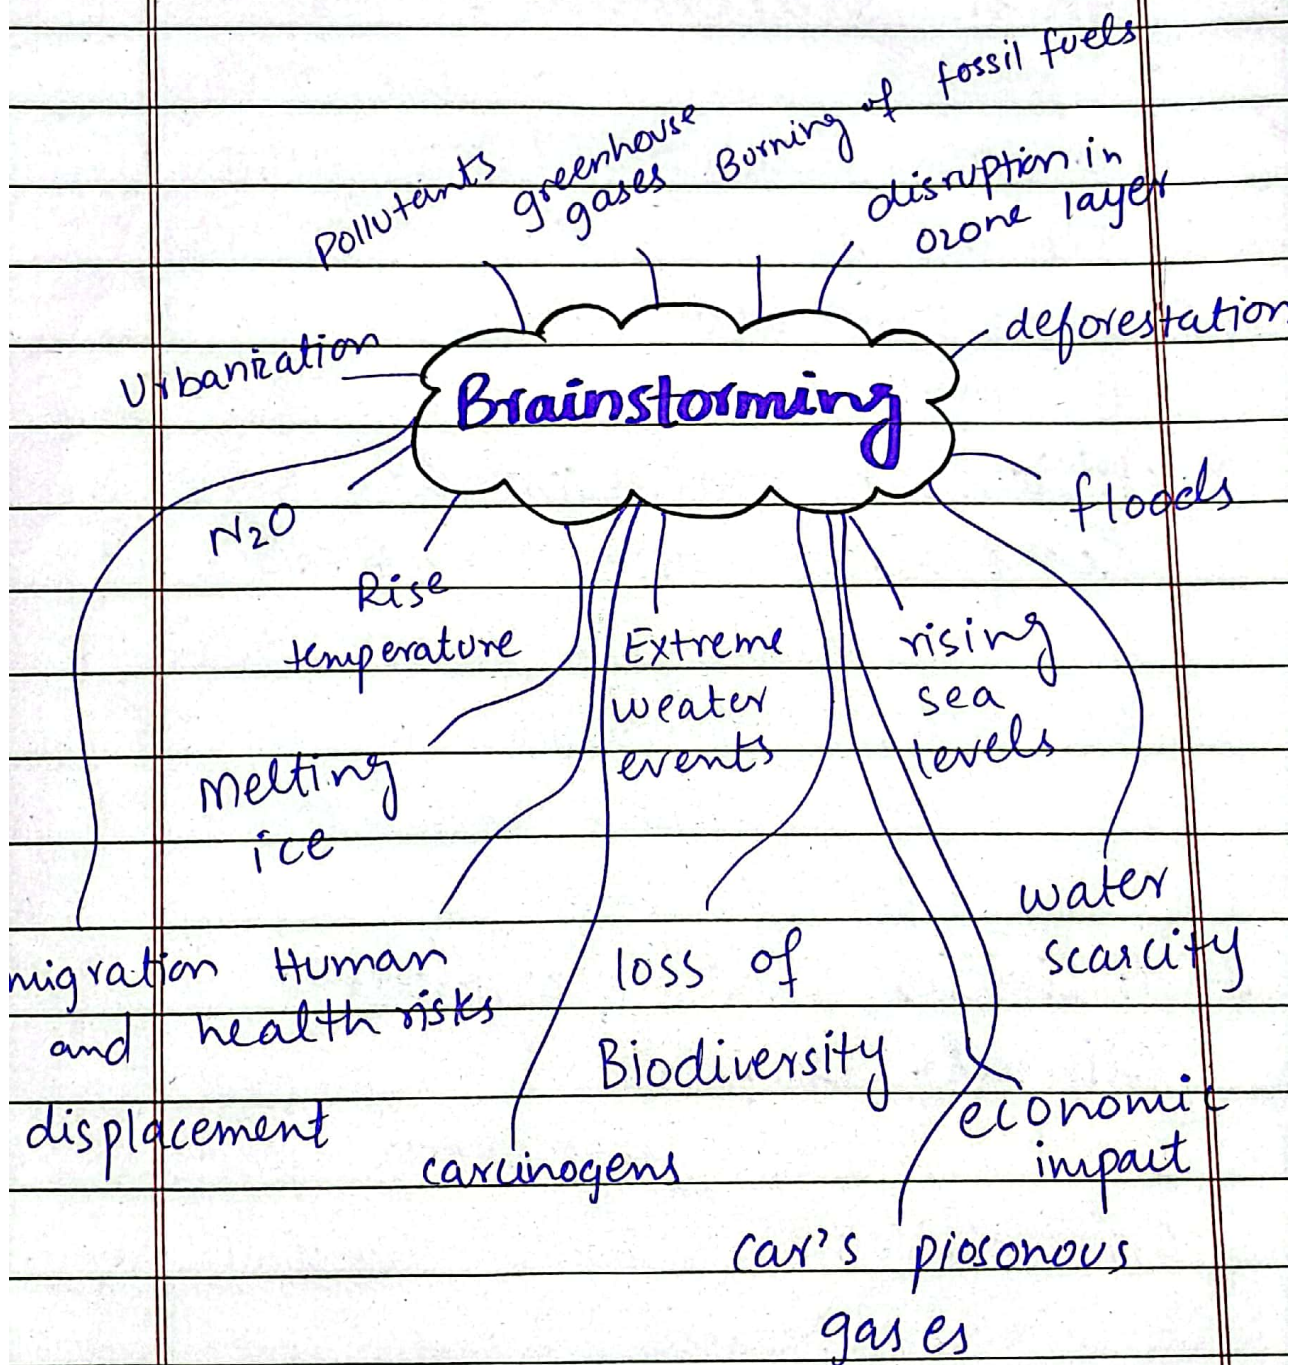 Pollutants
greenhouse
gases
Burning of fossil fuels
disruption in
ozone layer
deforestation
Urbanization
Brainstorming
floods
N2O
Rise
temperature
Extreme
weater
events
rising
sea
levels
Melting
ice
water
scarcity
migration
and
displacement
Human
health risks
loss of
Biodiversity
economic
impact
carcinogens
car's piosonous
gases